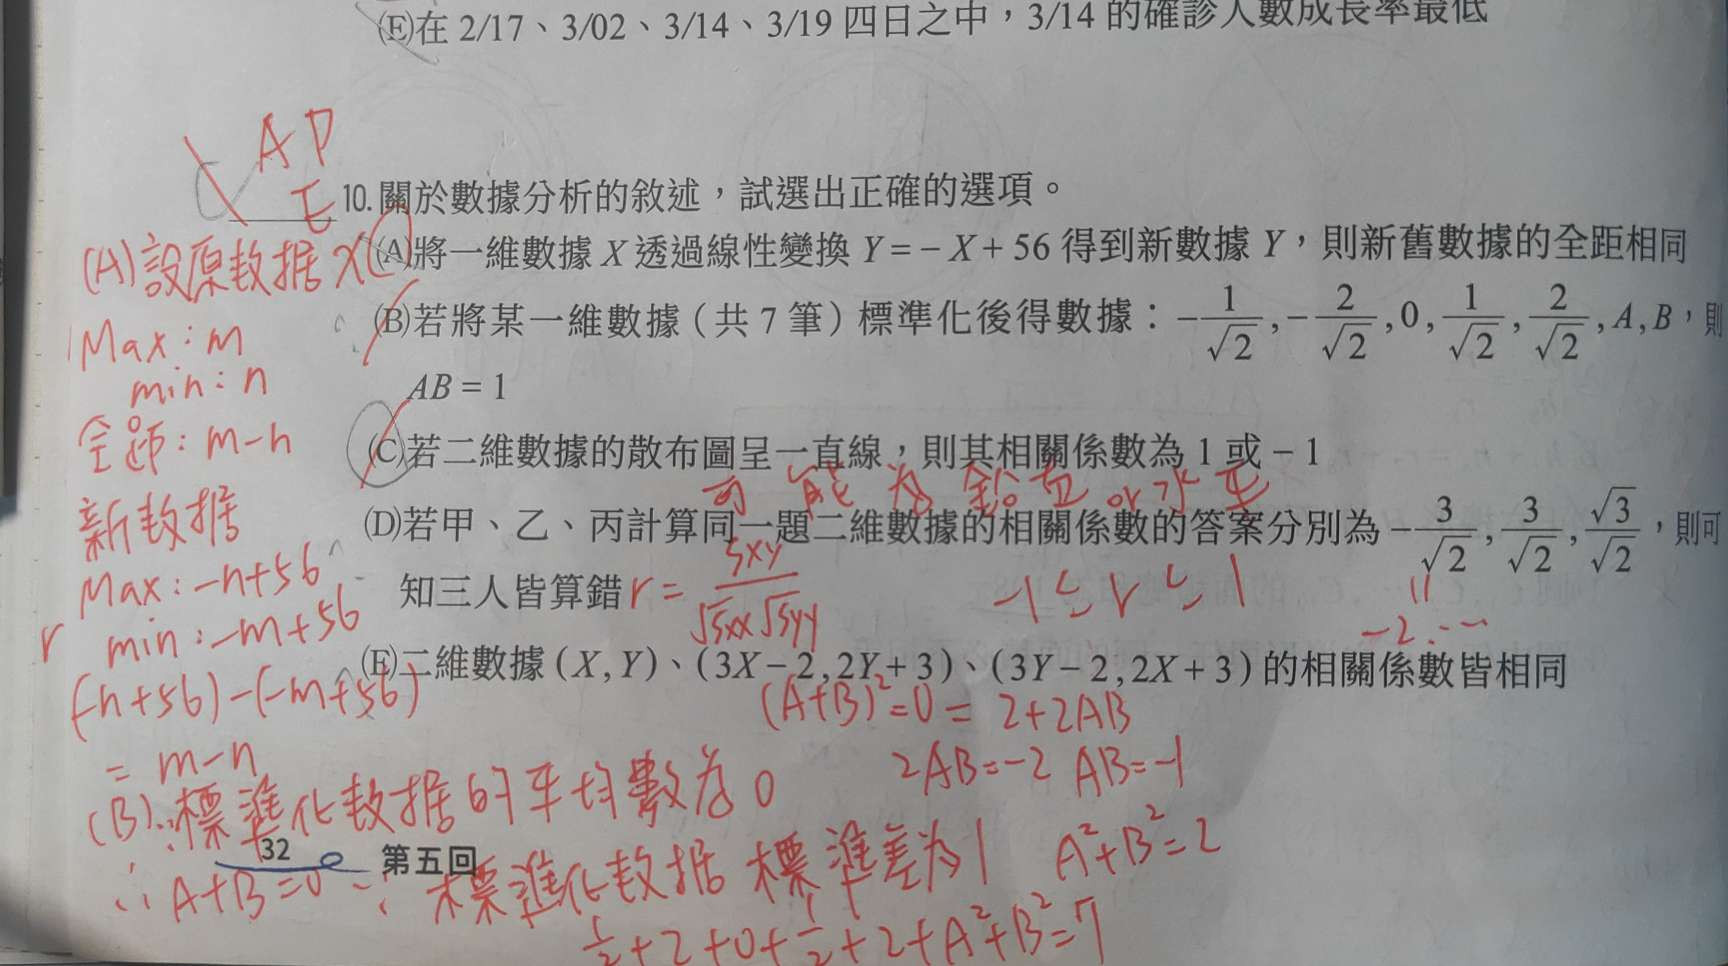 (E)在 2/17、3/02、3/14、3/19 四日之中，3/14 的確診人數成長率最低
A D
E
10.關於數據分析的敘述，試選出正確的選項。
(A)設原数据 X
(A)將一維數據 X 透過線性變換 Y = － X + 56 得到新數據 Y，則新舊數據的全距相同
Max : m
(B)若將某一維數據（共 7 筆）標準化後得數據：－1/√2 , －2/√2 , 0 , 1/√2 , 2/√2 , A , B，則
min : n
AB = 1
全距 : m－n
(C)若二維數據的散布圖呈一直線，則其相關係數為 1 或 － 1
可能為鉛直 or 水平
新数据
(D)若甲、乙、丙計算同一題二維數據的相關係數的答案分別為 －3/√2 , 3/√2 , √3/√2，則可
Max : －n+56
知三人皆算錯
r = Sxy/√Sxx√Syy
－1 ≤ r ≤ 1
－2.…
r
min : －m+56
(E)二維數據 ( X , Y )、( 3X － 2 , 2Y + 3 )、( 3Y － 2 , 2X + 3 ) 的相關係數皆相同
(－n+56)－(－m+56)
= m－n
(A+B)²=0 = 2+2AB
2AB=－2 AB=－1
(B)∵標準化数据的平均數為 0
32 第五回
∴A+B=0 ∵標準化数据 標準差為 1
A²+B²=2
1/2+2+0+1/2+2+A²+B²=7